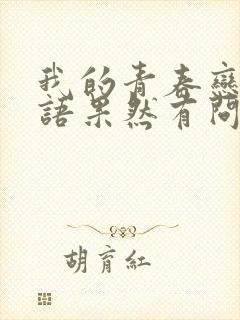 我的青春戀
語果然有問
胡育紅